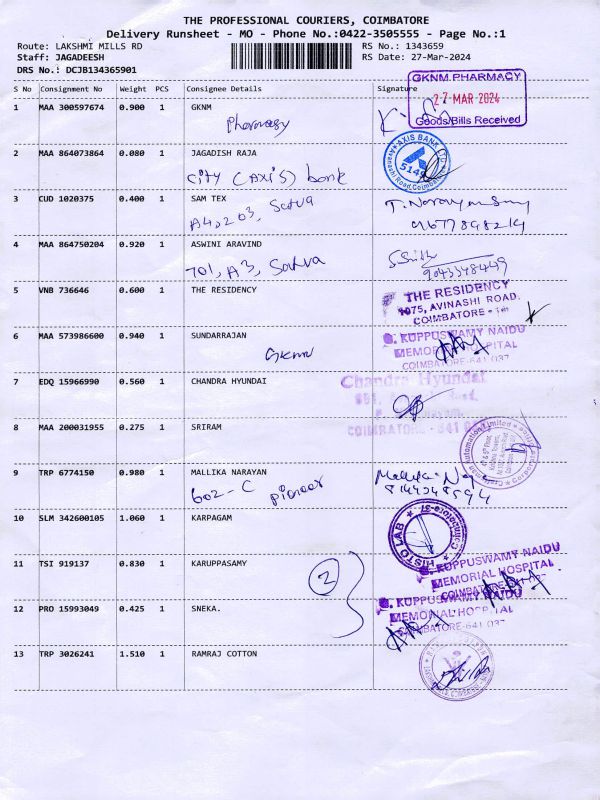 THE PROFESSIONAL COURIERS, COIMBATORE
Delivery Runsheet - MO - Phone No.:0422-3505555 - Page No.:1
Route: LAKSHMI MILLS RD
RS No.: 1343659
Staff: JAGADEESH
RS Date: 27-Mar-2024
DRS No.: DCJB134365901
S No Consignment No Weight PCS Consignee Details Signature
GKNM PHARMACY
27 MAR 2024
Goods/Bills Received
1 MAA 300597674 0.900 1 GKNM
Pharmacy
2 MAA 864073864 0.080 1 JAGADISH RAJA
City (Axis) bank
AXIS BANK LTD
3 CUD 1020375 0.400 1 SAM TEX
A4, 203, Satva
4 MAA 864750204 0.920 1 ASWINI ARAVIND
701, A3, Satva
5 VNB 736646 0.600 1 THE RESIDENCY
THE RESIDENCY
1075, AVINASHI ROAD.
COIMBATORE
6 MAA 573986600 0.940 1 SUNDARRAJAN
GKNM
G. KUPPUSWAMY NAIDU
MEMORIAL HOSPITAL
COIMBATORE-641 037
7 EDQ 15966990 0.560 1 CHANDRA HYUNDAI
Chandra Hyundai
COIMBATORE - 641
8 MAA 200031955 0.275 1 SRIRAM
9 TRP 6774150 0.980 1 MALLIKA NARAYAN
602 - C Pioneer
10 SLM 342600105 1.060 1 KARPAGAM
HISTO LAB
Coimbatore-37
11 TSI 919137 0.830 1 KARUPPASAMY
2
G. KUPPUSWAMY NAIDU
MEMORIAL HOSPITAL
12 PRO 15993049 0.425 1 SNEKA.
G. KUPPUSWAMY NAIDU
MEMORIAL HOSPITAL
COIMBATORE-641 037
13 TRP 3026241 1.510 1 RAMRAJ COTTON